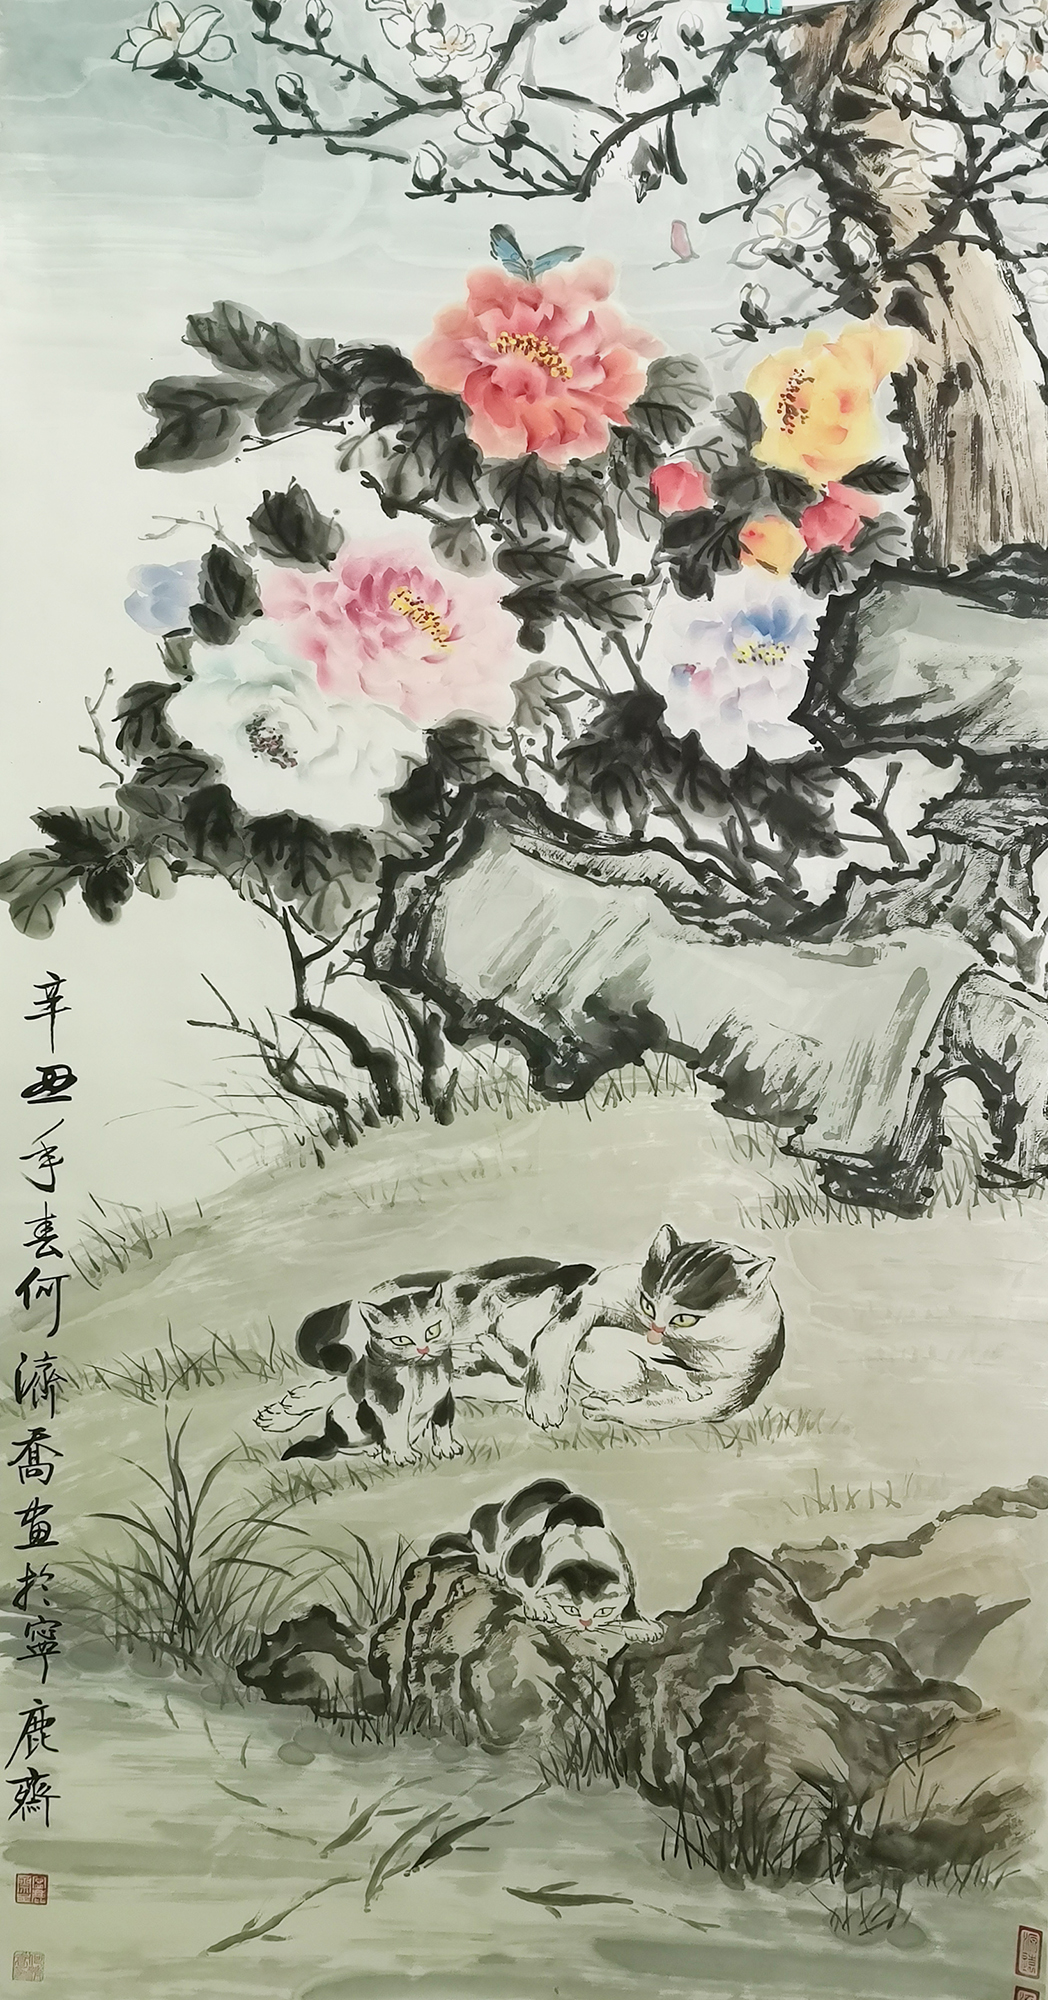 辛丑年春何濟喬畫於寧鹿齋